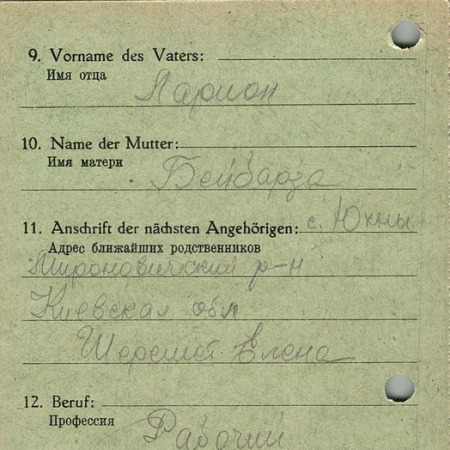 9. Vorname des Vaters:
Имя отца
Ларион
10. Name der Mutter:
Имя матери
Бейбарза
11. Anschrift der nächsten Angehörigen: с. Юхны
Адрес ближайших родственников
Мироновический р-н
Киевская обл
Шеремет Елена
12. Beruf:
Профессия
Рабочий